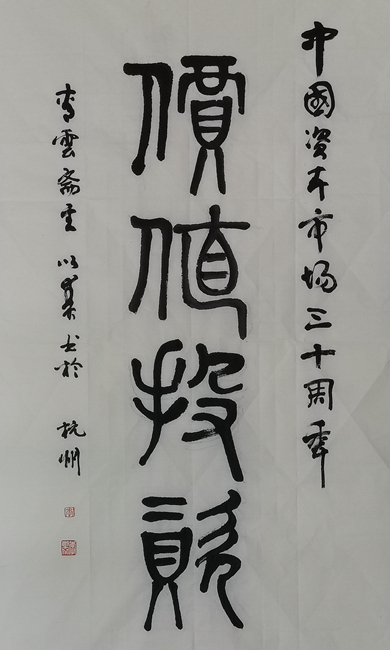 中國資本市场三十周年
價值投資
青雲斋主 以篆书於 杭州